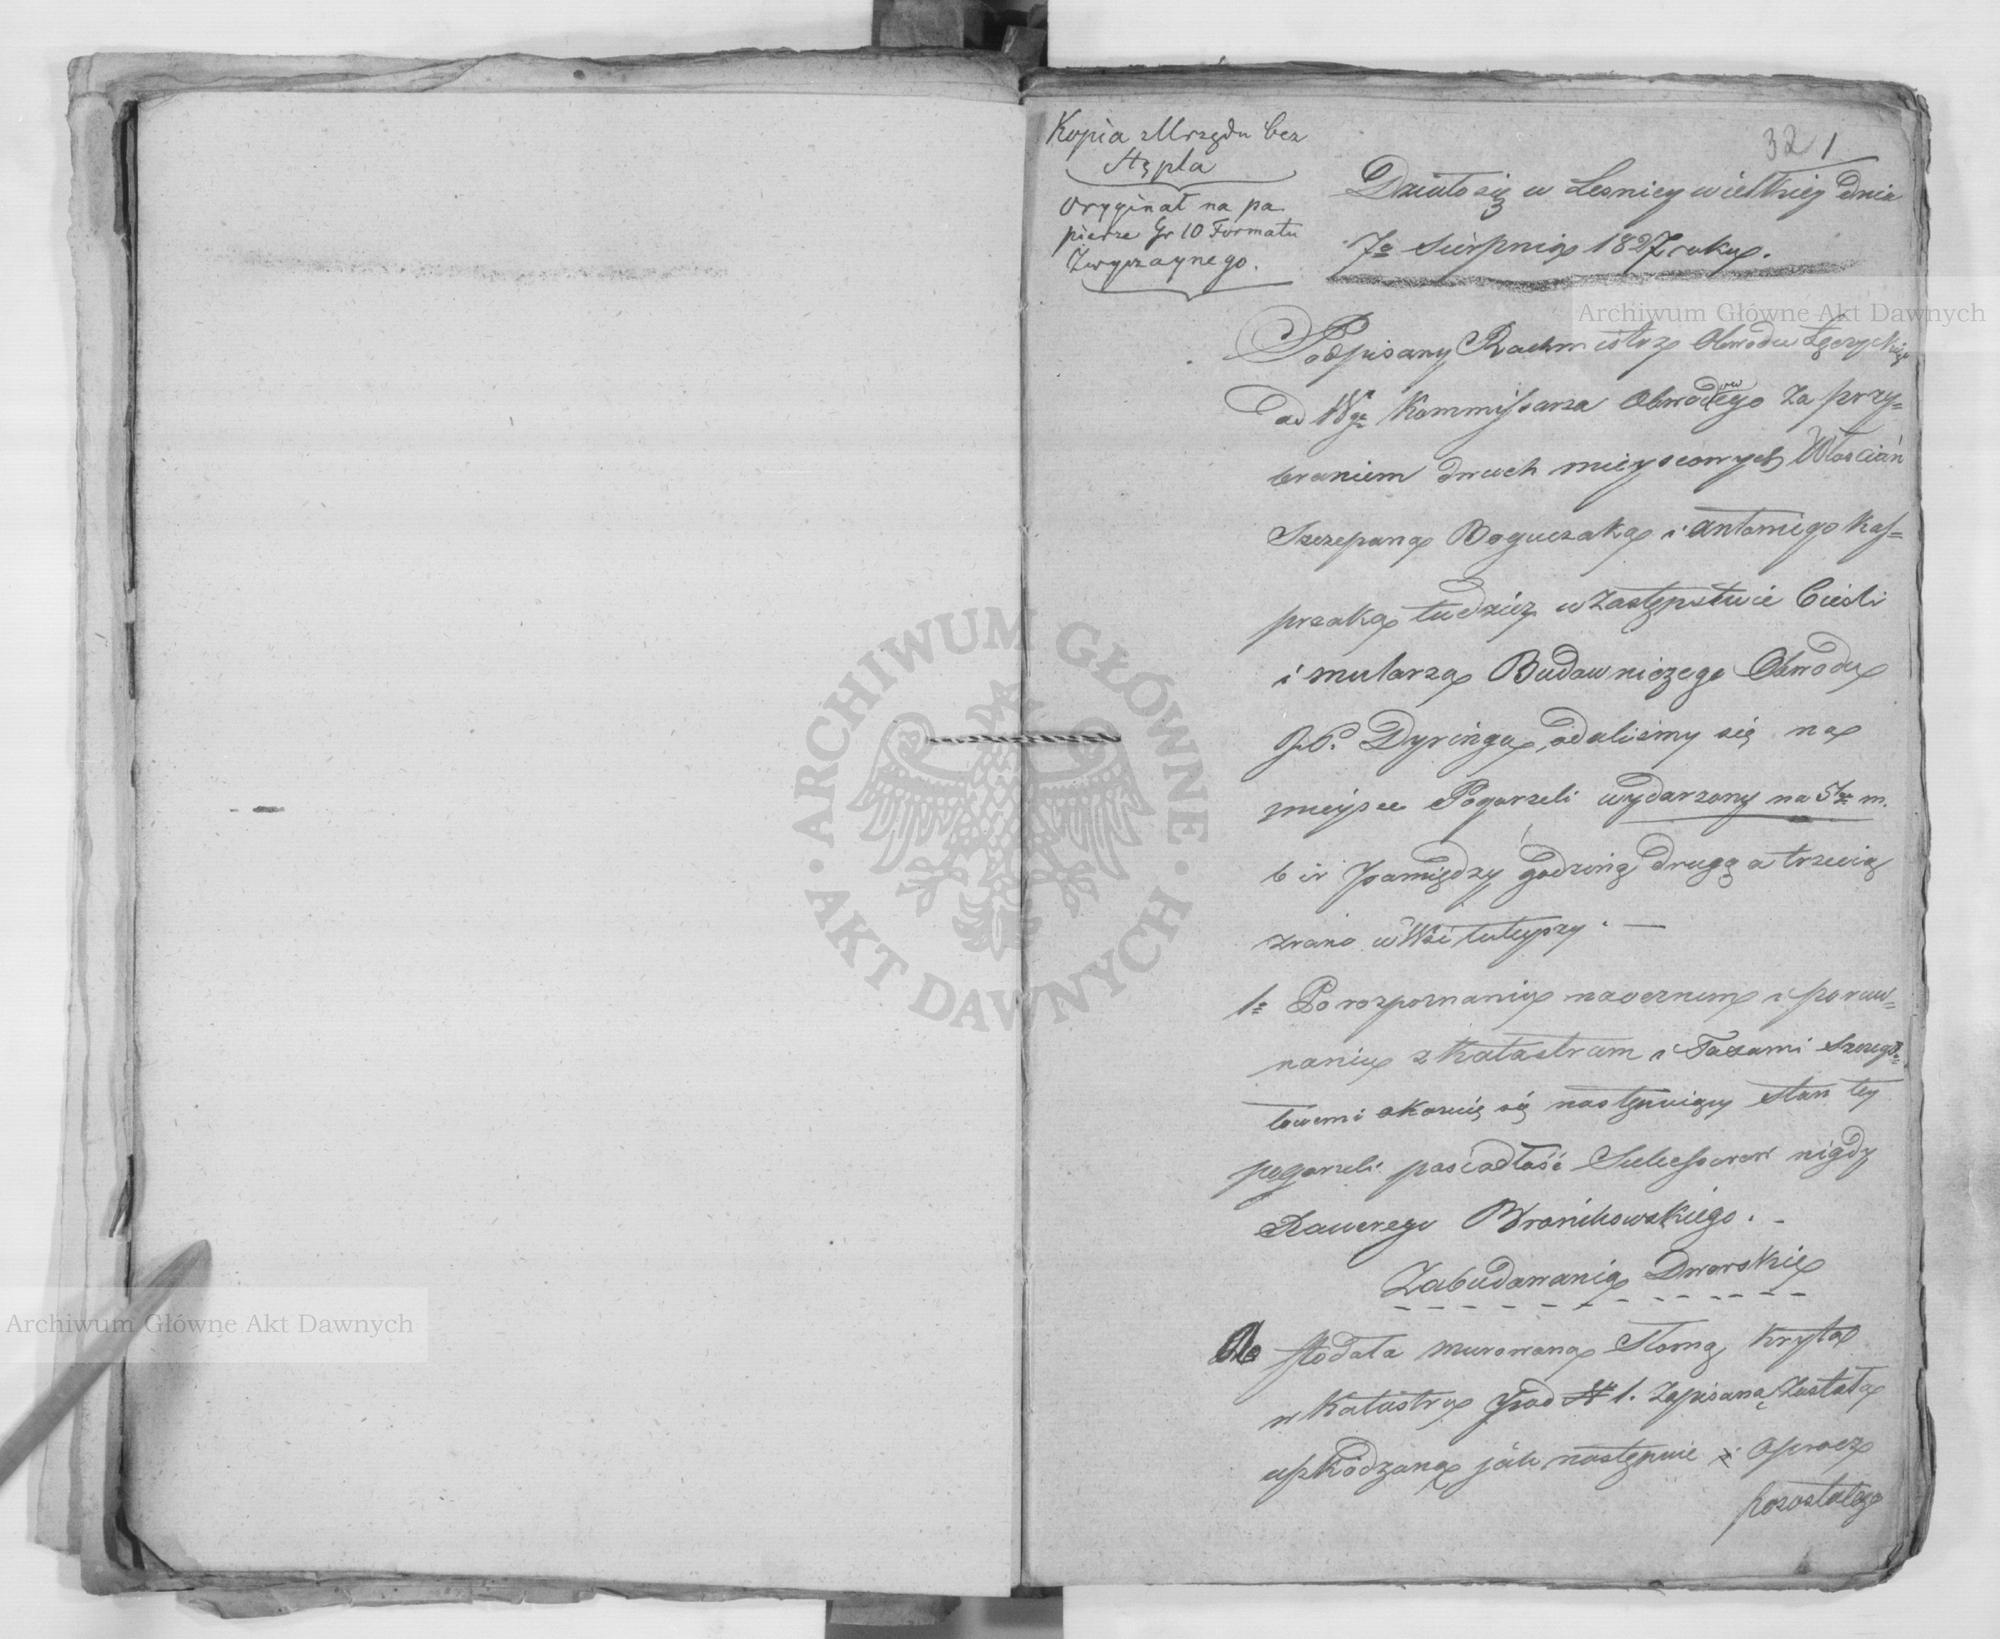 Kopia z Urzędu bez
Stępla
Oryginał na pa
pierze Gr 10 Formatu
Zwyczaynego.
32 1
Działo się w Lesnicy wielkiey dnia
7o Sierpnia 1827 roku.
Podpisany Rachmistrz Obwodu Łęczyckiego
od Wgo Kommissarza Obwodowego za przy=
braniem dwuch mieyscowych Włościan
Szczepana Boguczaka i Antoniego Kas=
przaka tudzież w zastępstwie Cieśli
i mularza Budowniczego Obwodu
JP. Dyringa, udaliśmy się na
mieysce Pogorzeli wydarzony na 5tego m.
b ir pomiędzy godziną drugą a trzecią
zrano w Wsi tuteyszy. —
1o Po rozpoznaniu naocznem i porów=
naniu z Katastrem i Taxami Szczegó=
łowemi okazuie się następuiący stan tey
pogorzeli posiadłość Sukcessorow nigdy
Xawerego Bronikowskiego. -
Zabudowania Dworskie
Stodoła murowana Słomą kryta
w Katastrze pod N 1. Zapisana, Została
uszkodzona jak następuie i oprocz
pozostałego
Archiwum Główne Akt Dawnych
Archiwum Główne Akt Dawnych
ARCHIWUM GŁÓWNE · AKT DAWNYCH ·